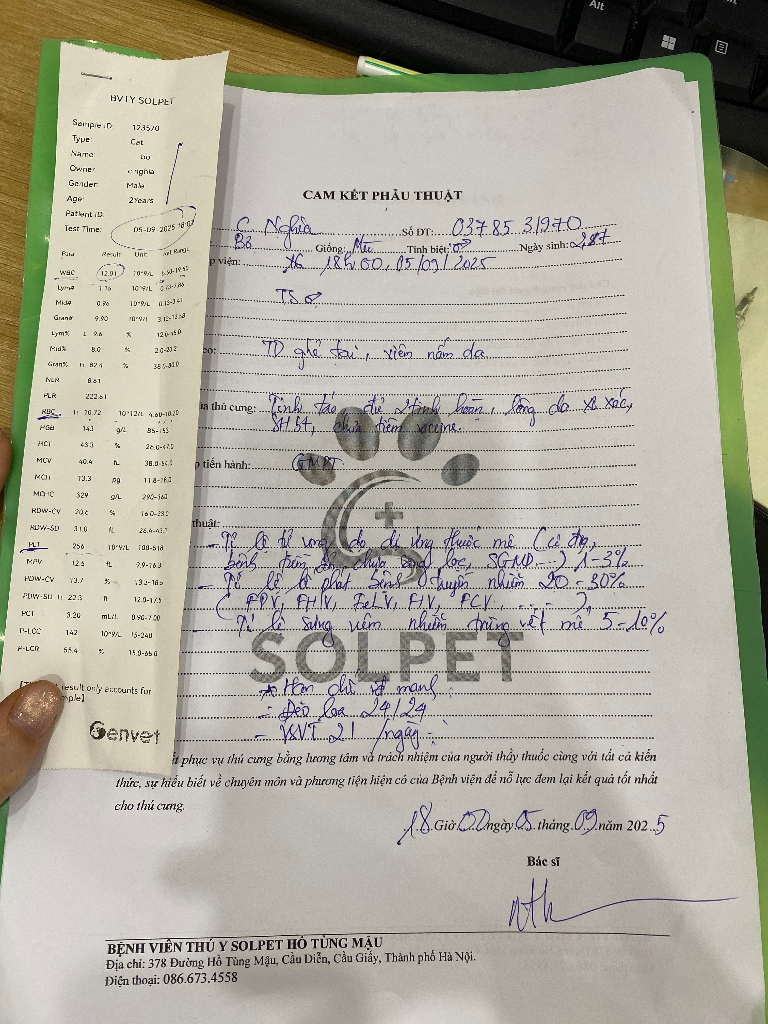 BVTY SOLPET
Sample ID: 123570
Type: Cat
Name: bo
Owner c nghia
Gender: Male
Age: 2Years
Patient ID:
Test Time: 05-09-2025 18:07
Para Result Unit Ref Range
WBC 12.01 10^9/L 5.50-19.50
Lym# 1.15 10^9/L 0.73-7.86
Mid# 0.96 10^9/L
Gran# 9.90 10^9/L
Lym% L 9.6 % 12.0-45.0
Mid% 8.0 % 2.0-20.2
Gran% H 82.4 %
NLR 8.61
PLR 222.61
RBC H 10.72 10^12/L 4.60-10.20
HGB 143 g/L 85-153
HCT 43.3 % 26.0-47.0
MCV 40.4 fL 38.0-54.0
MCH 13.3 pg 11.8-18.0
MCHC 329 g/L 290-360
RDW-CV 20.6 % 16.0-23.0
RDW-SD 31.0 fL 26.4-43.7
PLT 256 10^9/L 100-518
MPV 12.5 fL 9.9-16.3
PDW-CV 13.7 %
PDW-SD H 22.3 fL 12.0-17.5
PCT 3.20 mL/L 0.90-7.00
P-LCC 142 10^9/L 15-240
P-LCR 55.4 % 15.0-65.0
result only accounts for
Genvet
CAM KẾT PHẪU THUẬT
C Nghĩa Số ĐT: 03785.31970
Bơ Giống: Mều Tính biệt: ♂ Ngày sinh: 2,8T
viện: 18h00, 05/09/2025
TS ♂
TD ghẻ tai, viêm nấm da
thú cưng: Tỉnh táo, đủ 2 tinh hoàn, lông da xơ xác,
SHBT, chưa tiêm vaccine.
tiến hành: GMPT
thuật:
- Tỉ lệ tử vong do dị ứng thuốc mê (cơ địa,
bệnh tiềm ẩn chưa sàng lọc, SGMD...) 1-3%
- Tỉ lệ bị phát bệnh truyền nhiễm 20-30%
(FPV, FHV, FeLV, FIV, FCV....),
- Tỉ lệ sưng viêm nhiễm trùng vết mổ 5-10%
SOLPET
* Hạn chế vđ mạnh:
- Đeo loa 24/24
- VSVT 2l /ngày.
phục vụ thú cưng bằng lương tâm và trách nhiệm của người thầy thuốc cùng với tất cả kiến
thức, sự hiểu biết về chuyên môn và phương tiện hiện có của Bệnh viện để nỗ lực đem lại kết quả tốt nhất
cho thú cưng.
18 Giờ 00 ngày 05 tháng 09 năm 2025
Bác sĩ
BỆNH VIỆN THÚ Y SOLPET HỒ TÙNG MẬU
Địa chỉ: 378 Đường Hồ Tùng Mậu, Cầu Diễn, Cầu Giấy, Thành phố Hà Nội.
Điện thoại: 086.673.4558
Alt